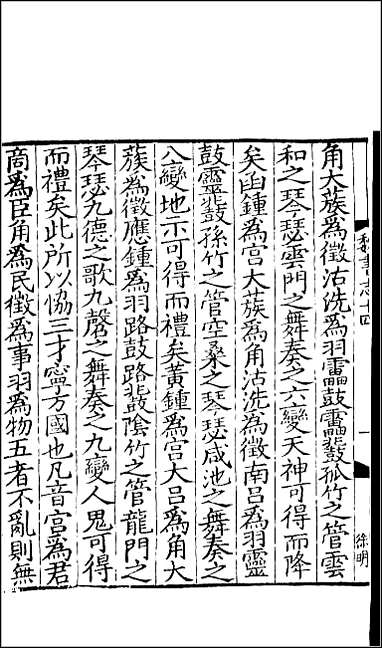 角大蔟爲徵沽洗爲羽靁鼓靁鼗孤竹之管雲
和之琴瑟雲門之舞奏之六變天神可得而降
矣函鍾爲宮大蔟爲角沽洗爲徵南呂爲羽靈
鼓靈鼗孫竹之管空桑之琴瑟咸池之舞奏之
八變地示可得而禮矣黃鍾爲宮大呂爲角大
蔟爲徵應鍾爲羽路鼓路鼗陰竹之管龍門之
琴瑟九德之歌九磬之舞奏之九變人鬼可得
而禮矣此所以協三才寧方國也凡音宮爲君
商爲臣角爲民徵爲事羽爲物五者不亂則無
魏書志十四
一
徐明